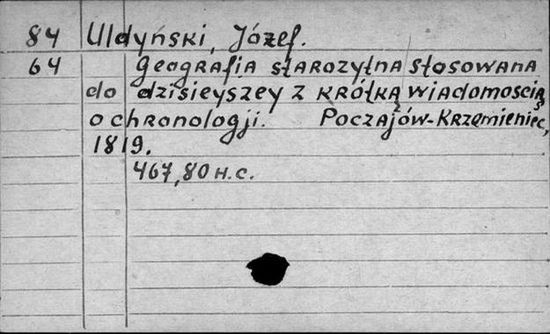 84 Uldyński, Józef.
64 Geografia starożytna stosowana
do dzisieyszey z krótką wiadomością
o chronologji. Poczajów-Krzemieniec,
1819.
467,80 н.с.